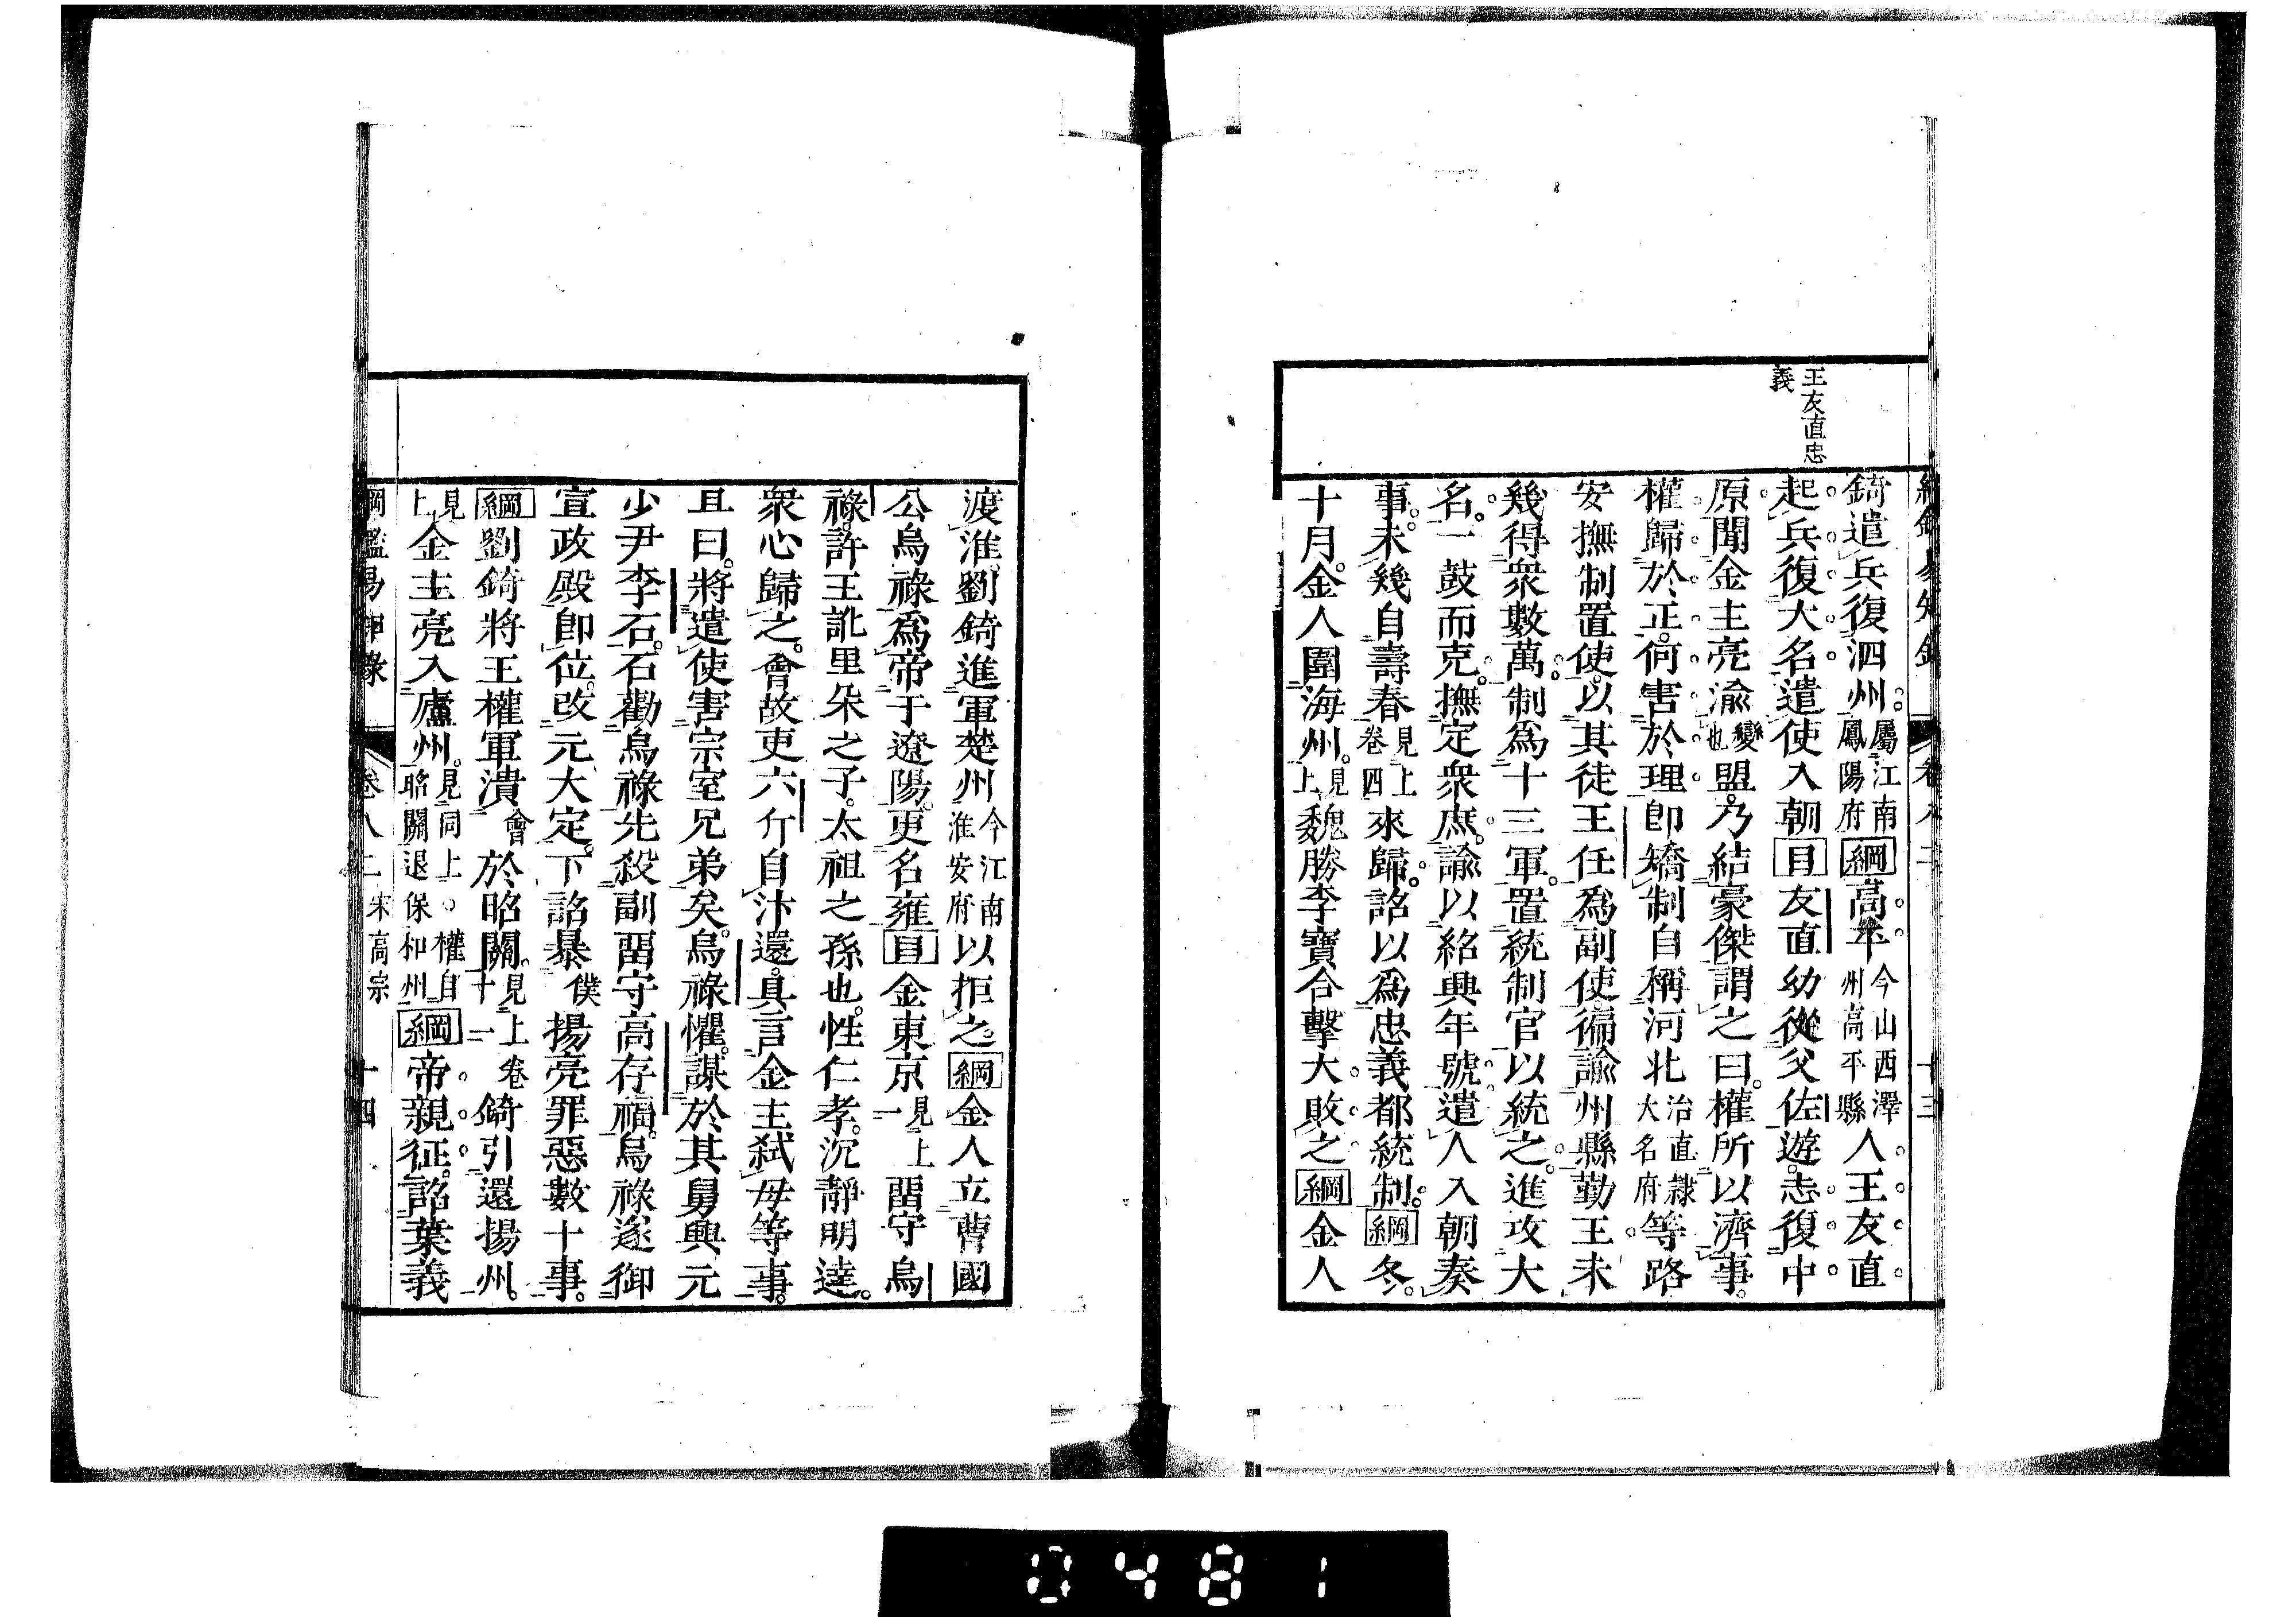 綱鑑易知錄 卷八二 十三
王友直忠
義
錡遣兵復泗州。屬江南鳳陽府綱高平今山西澤州高平縣人王友直
起兵復大名。遣使入朝目友直幼從父佐遊。志復中
原。聞金主亮渝變也盟。乃結豪傑謂之曰。權所以濟事。
權歸於正。何害於理。即矯制自稱河北治直隸大名府等路
安撫制置使。以其徒王任爲副使。徧諭州縣勤王。未
幾得衆數萬。制爲十三軍。置統制官以統之。進攻大
名。一鼓而克。撫定衆庶。諭以紹興年號。遣人入朝奏
事。未幾自壽春見上卷四來歸。詔以爲忠義都統制。綱冬。
十月。金人圍海州。見上魏勝李寶合擊大敗之綱金人
渡淮。劉錡進軍楚州今江南淮安府以拒之。綱金人立曹國
公烏祿爲帝于遼陽。更名雍目金東京見上一留守烏
祿。許王訛里朵之子。太祖之孫也。性仁孝。沉靜明達。
衆心歸之。會故吏六斤自汴還。具言金主弑母等事。
且曰。將遣使害宗室兄弟矣。烏祿懼。謀於其舅興元
少尹李石。石勸烏祿先殺副留守高存福。烏祿遂御
宣政殿即位。改元大定。下詔暴僕揚亮罪惡數十事。
綱劉錡將王權軍潰會於昭關。見上卷十一錡引還揚州。
見上金主亮入廬州。見同上。權自昭關退保和州綱帝親征。詔葉義
綱鑑易知錄 卷八二 宋高宗 十四
0481